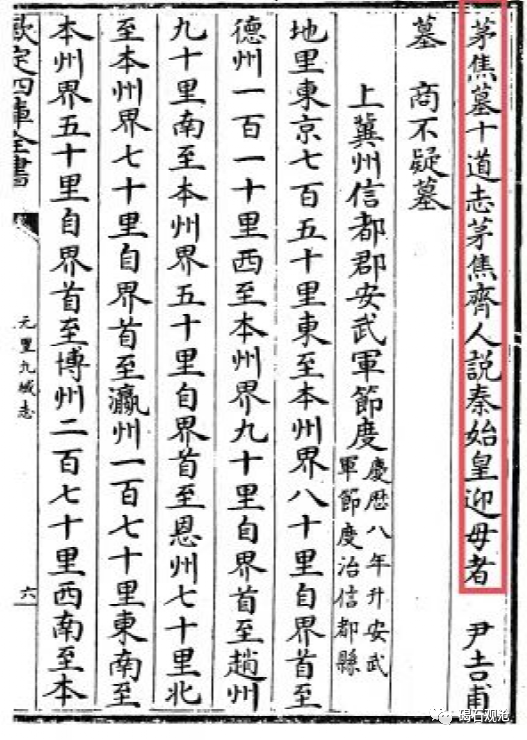 茅焦墓十道志茅焦齊人説秦始皇迎母者　尹吉甫
墓　商不疑墓
上冀州信都郡安武軍節度慶厯八年升安武軍節度治信都縣
地里東京七百五十里東至本州界八十里自界首至
德州一百一十里西至本州界九十里自界首至趙州
九十里南至本州界五十里自界首至恩州七十里北
至本州界七十里自界首至瀛州一百七十里東南至
本州界五十里自界首至博州二百七十里西南至本
欽定四庫全書
元豐九域志
六
碣石观沧